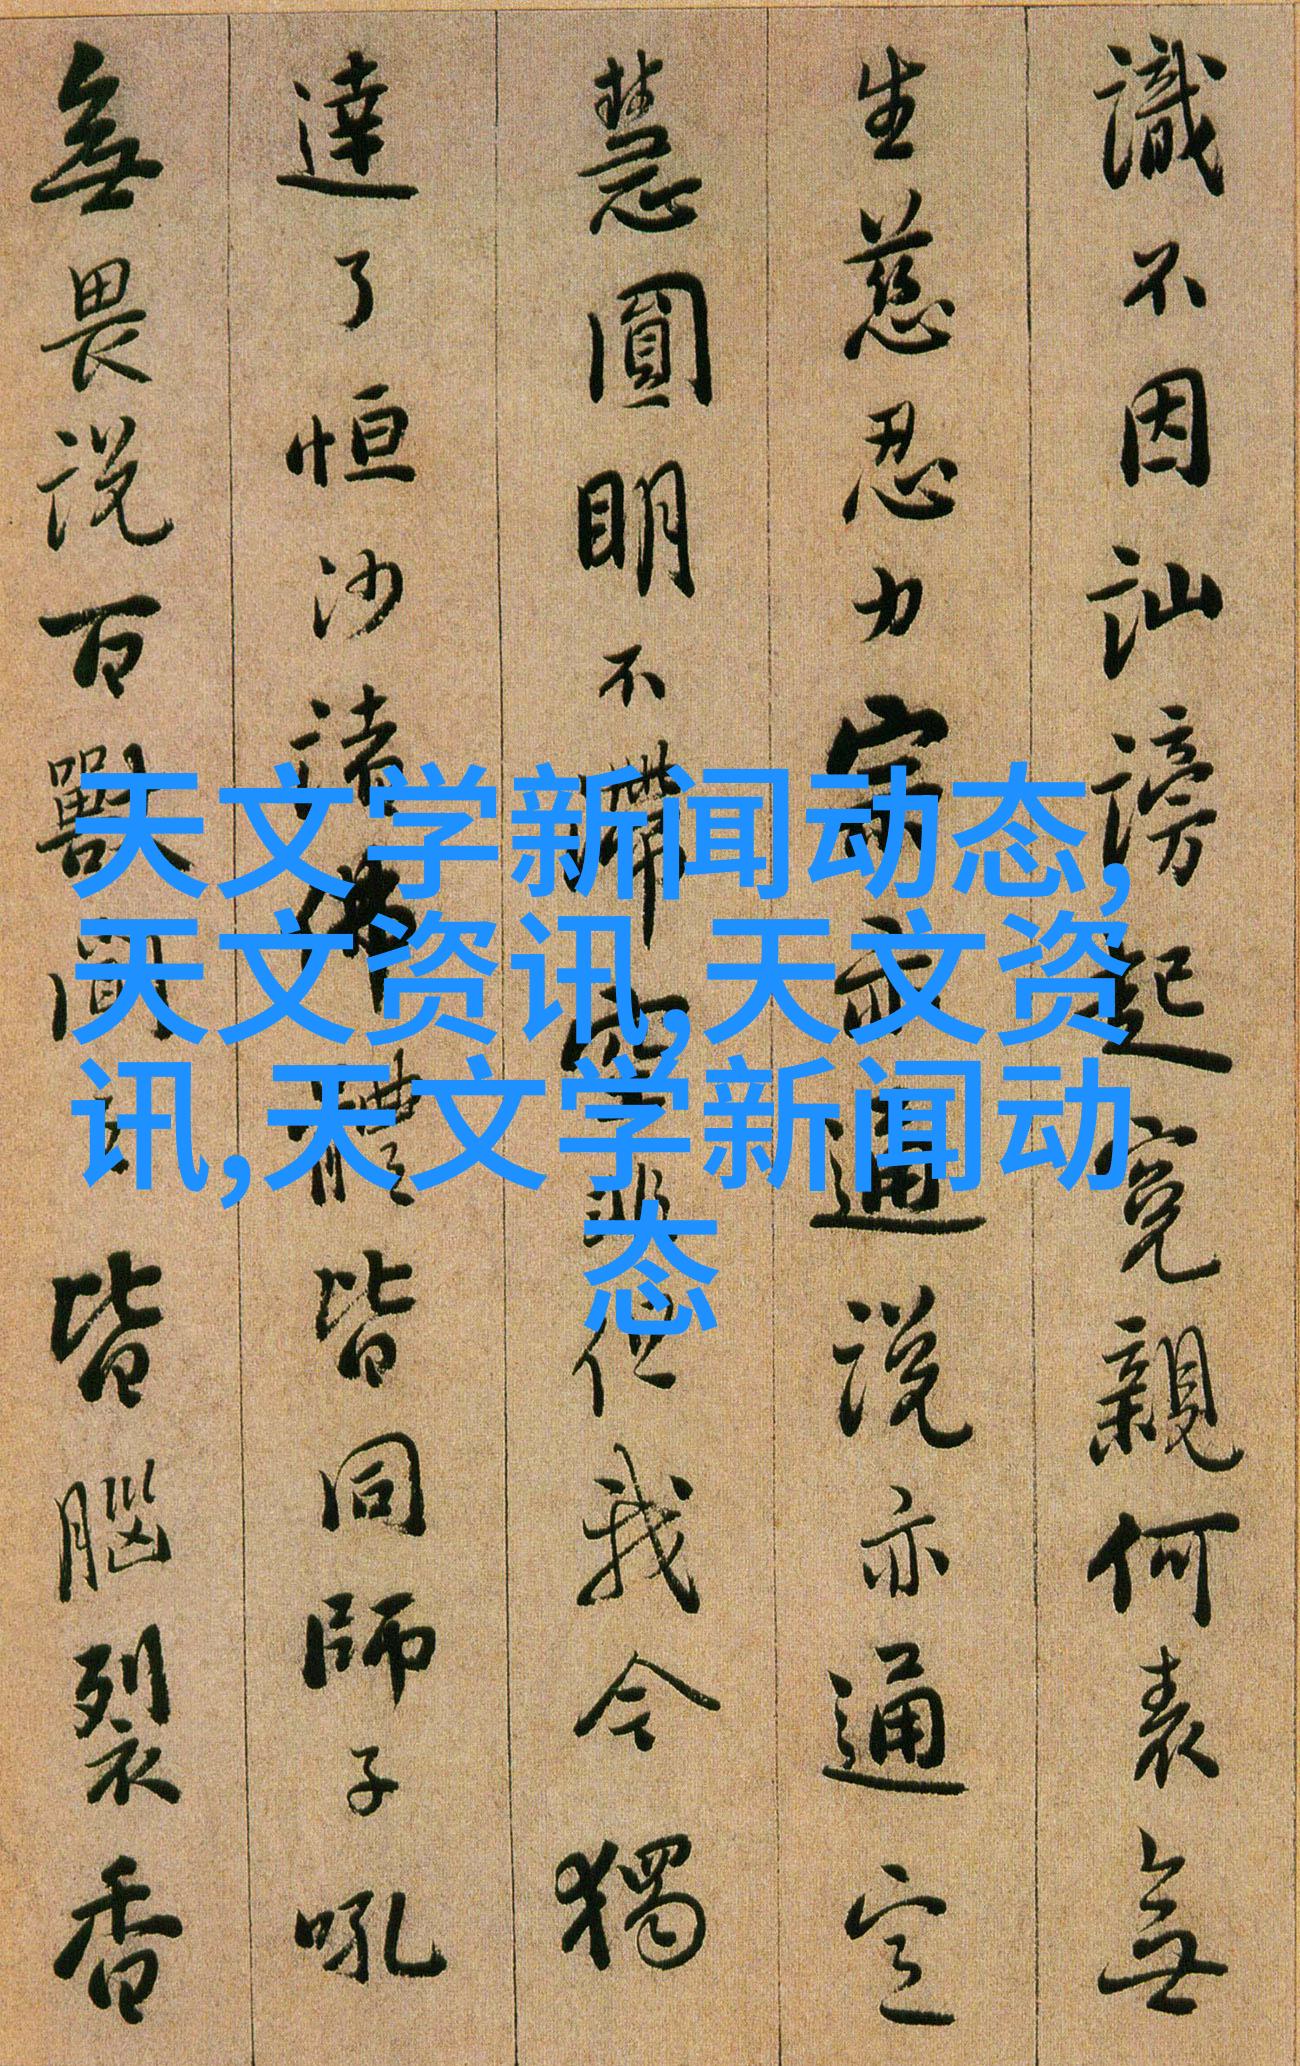 識不因訕謗起寃親何表無
生慈忍力宗亦通説亦通定
慧圓明不滯空非但我今獨
達了恒沙諸佛體皆同師子吼
無畏説百獸聞之皆腦裂香
天文学新闻动态,
天文资讯,天文资
讯,天文学新闻动
态